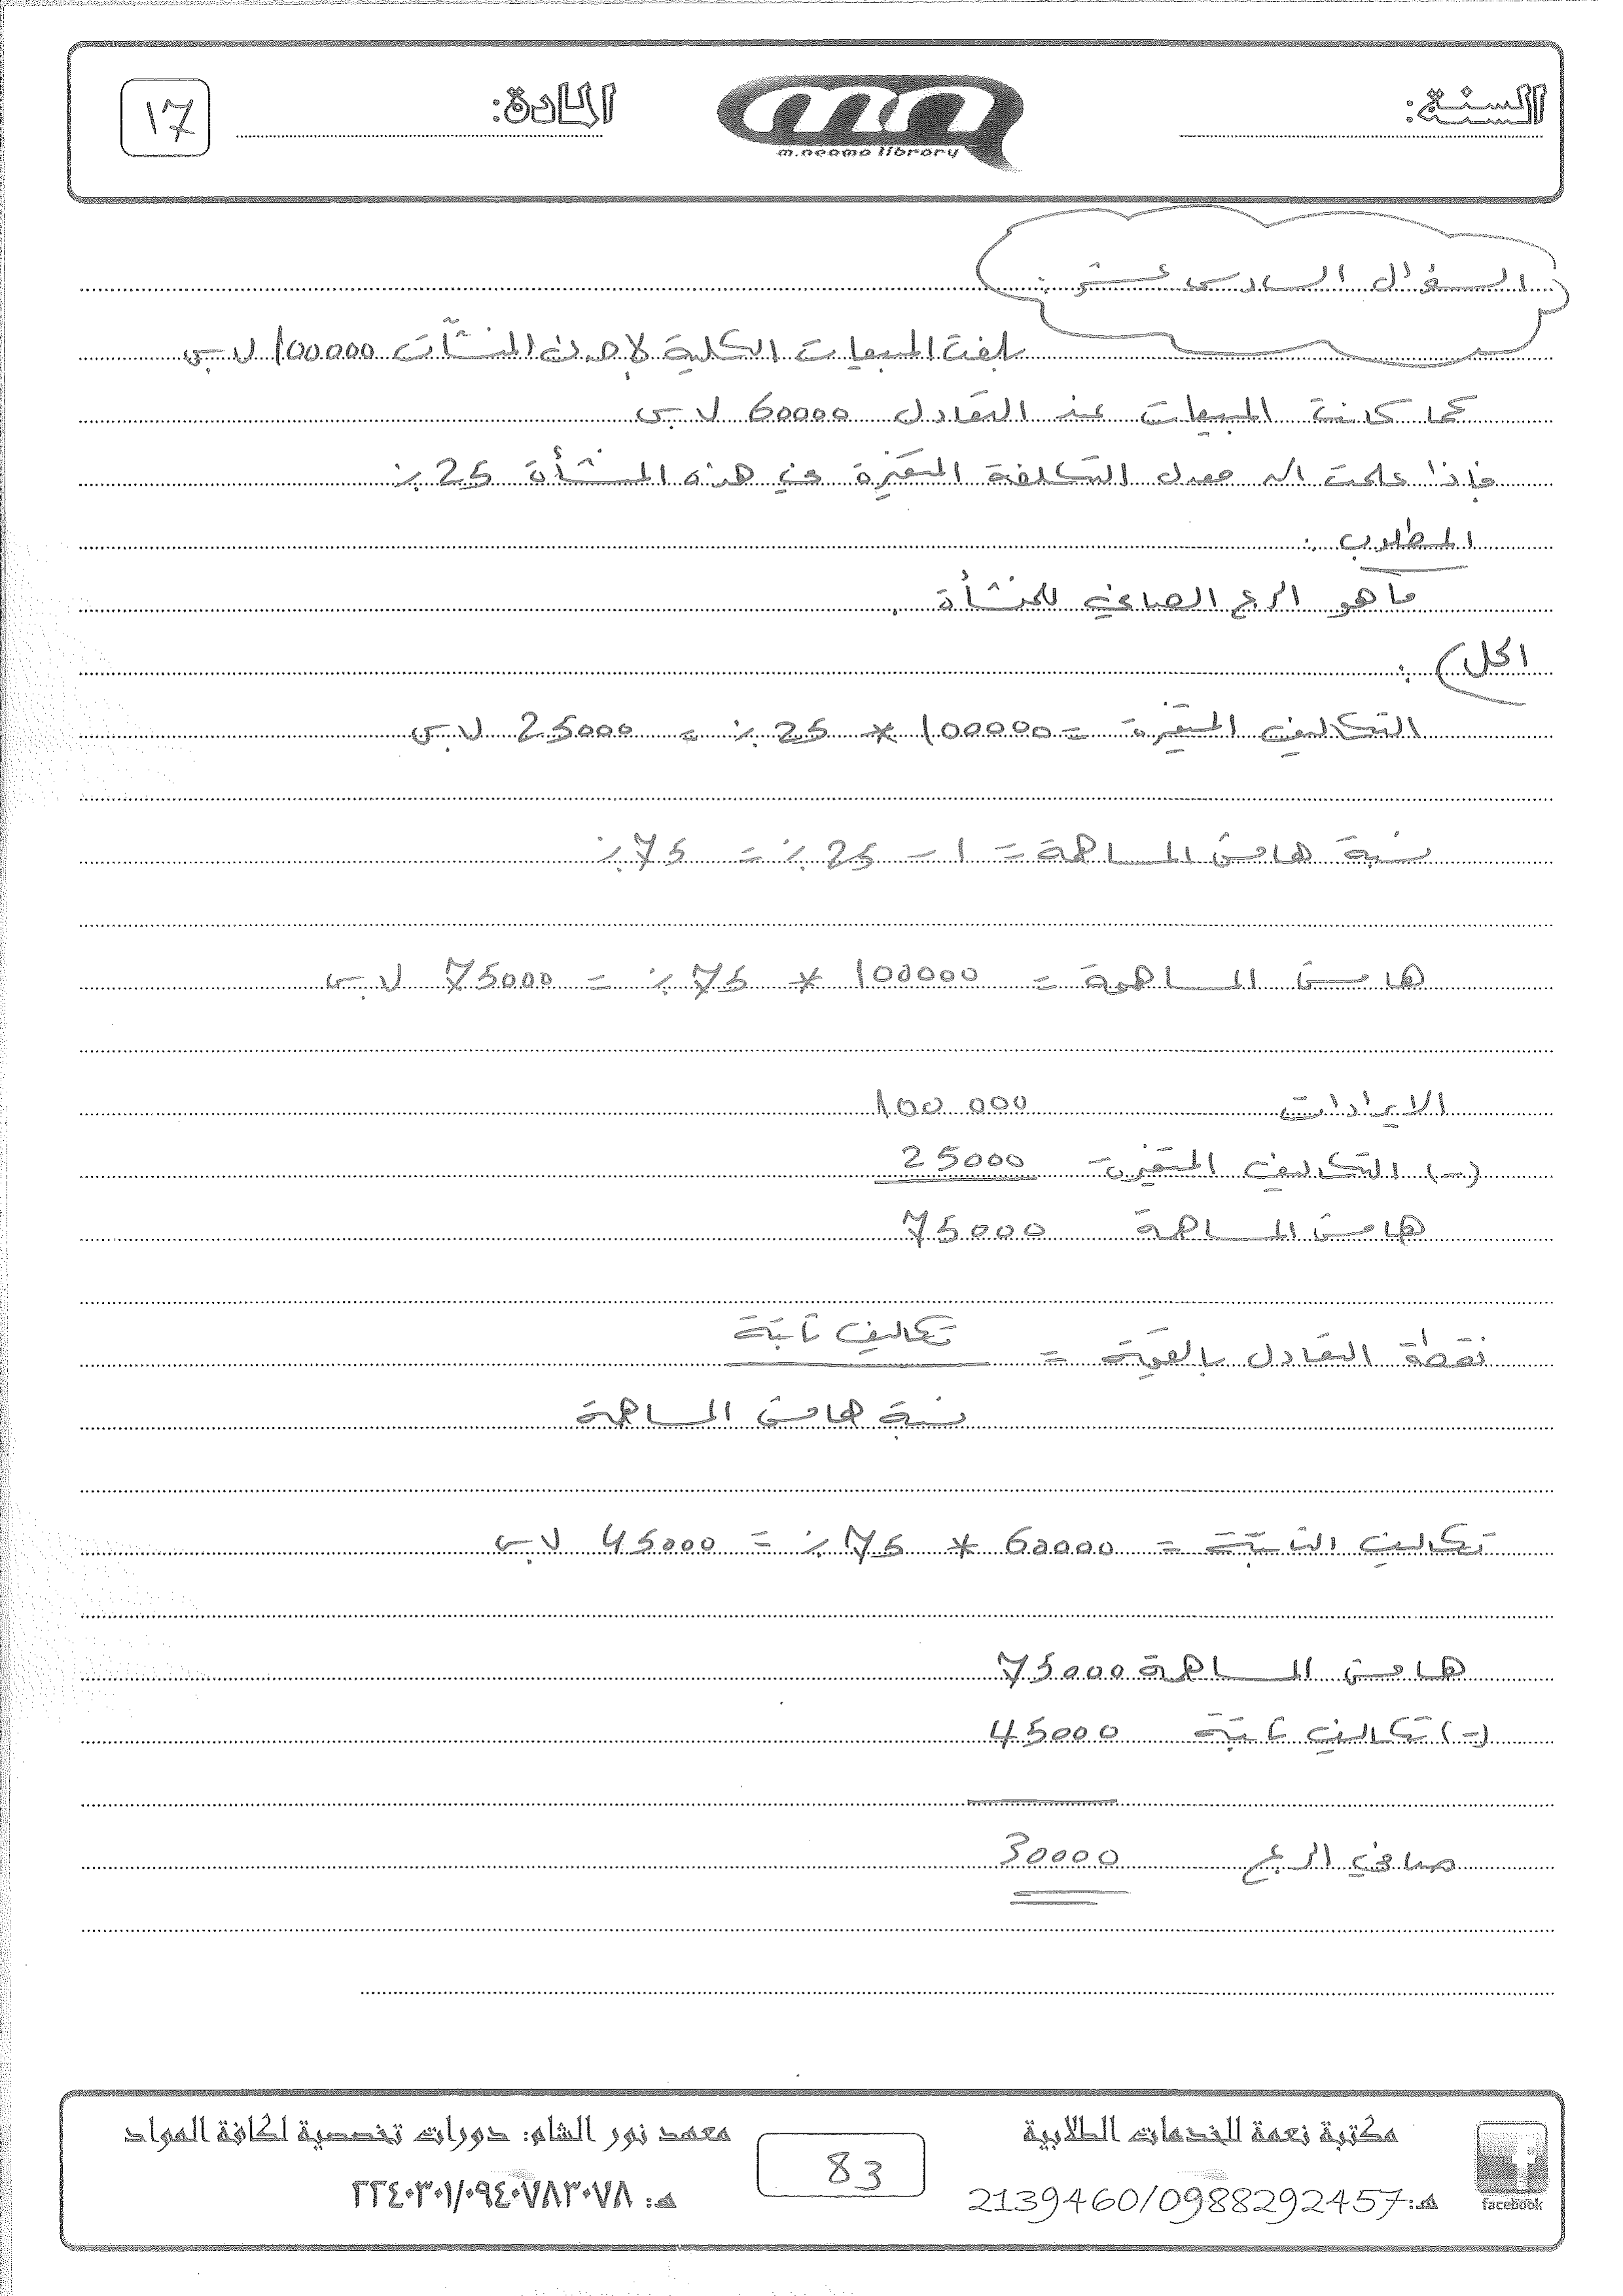 السنة:
m.neama library
المادة:
17
السؤال السادس عشر:
بلغت المبيعات الكلية لإحدى المنشآت 100000 ل.س
كما كانت المبيعات عند التعادل 60000 ل.س
فإذا علمت ان معدل التكلفة المتغيرة في هذه المنشأة 25%
المطلوب:
ما هو الربح الصافي للمنشأة.
الحل:
التكاليف المتغيرة = 100000 * 25% = 25000 ل.س
نسبة هامش المساهمة = 1 - 25% = 75%
هامش المساهمة = 100000 * 75% = 75000 ل.س
الايرادات 100 000
(-) التكاليف المتغيرة 25000
هامش المساهمة 75000
نقطة التعادل بالقيمة = تكاليف ثابتة
نسبة هامش المساهمة
تكاليف الثابتة = 60000 * 75% = 45000 ل.س
هامش المساهمة 75000
(-) تكاليف ثابتة 45000
صافي الربح 30000
مكتبة نعمة للخدمات الطلابية
هـ: 2139460/0988292457
facebook
83
معهد نور الشام: دورات تخصصية لكافة المواد
هـ: ٢٢٤٠٣٠١/٠٩٤٠٧٨٣٠٧٨